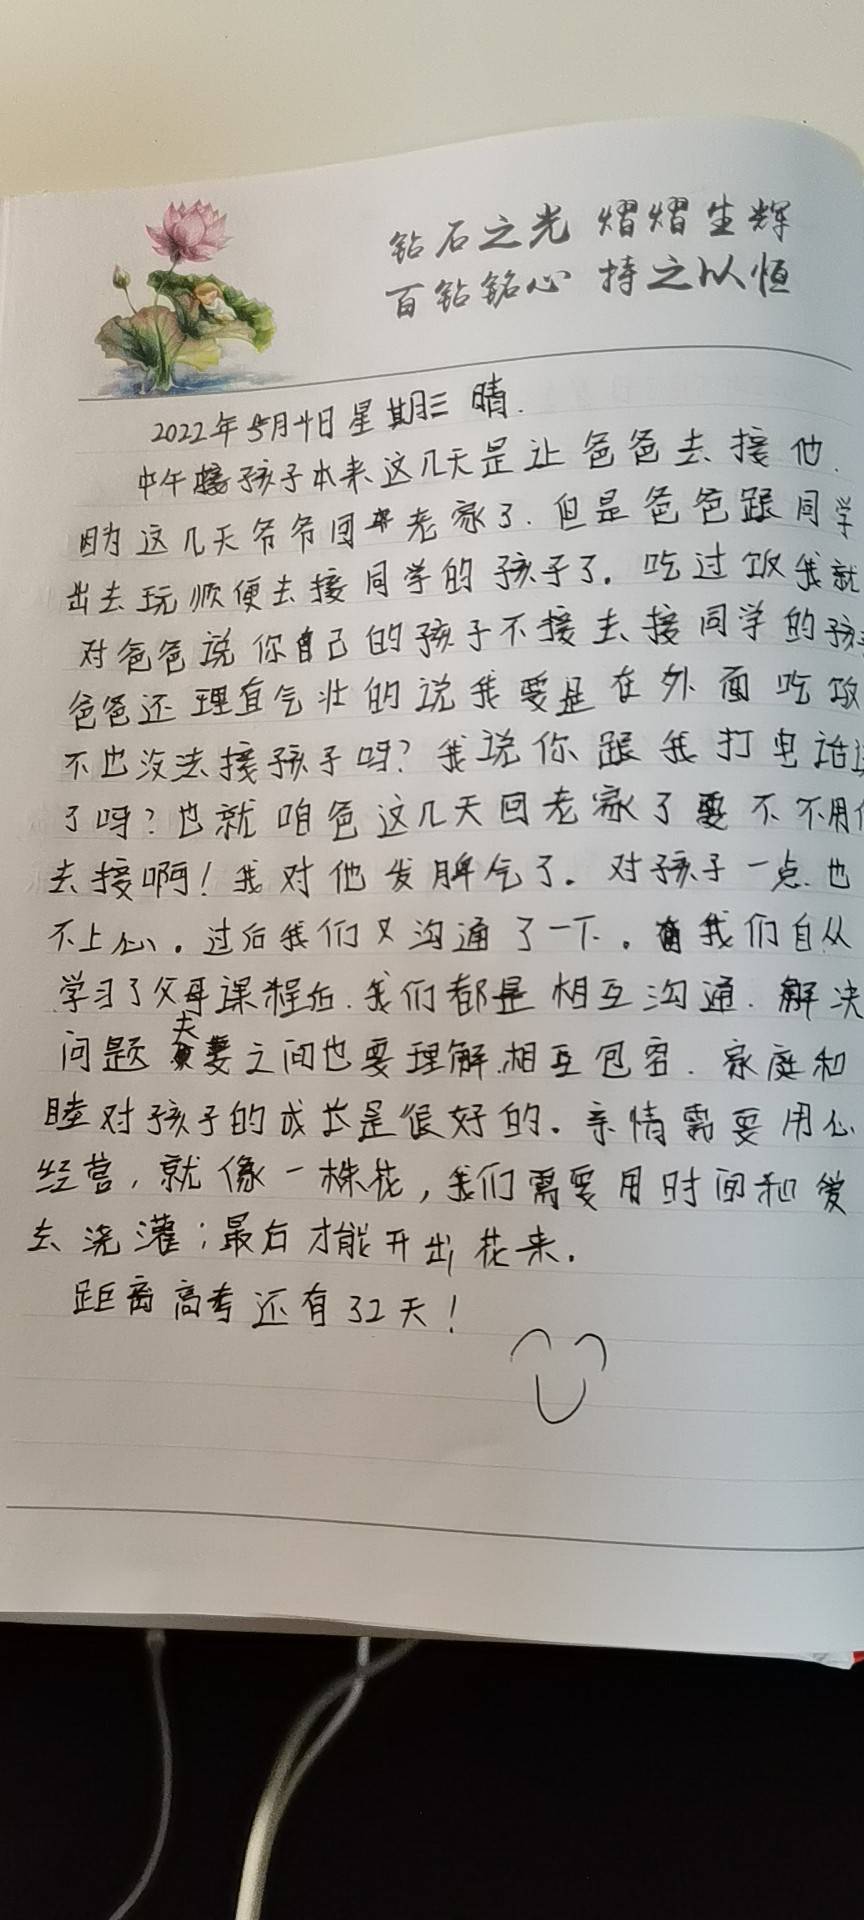 钻石之光 熠熠生辉
百钻铭心 持之以恒
2022年5月4日星期三 晴.
中午接孩子本来这几天是让爸爸去接他.
因为这几天爷爷回老家了.但是爸爸跟同学
出去玩顺便去接同学的孩子了.吃过饭我就
对爸爸说你自己的孩子不接去接同学的孩
爸爸还理直气壮的说我要是在外面吃饭
不也没法接孩子吗?我说你跟我打电话
了吗?也就咱爸这几天回老家了要不不用
去接啊!我对他发脾气了.对孩子一点也
不上心.过后我们又沟通了一下.我们自从
学习了父母课程后.我们都是相互沟通.解决
问题夫妻之间也要理解.相互包容.家庭和
睦对孩子的成长是很好的.亲情需要用心
经营,就像一株花,我们需要用时间和爱
去浇灌;最后才能开出花来.
距离高考还有32天!